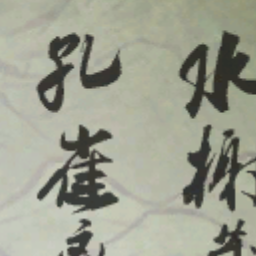 水榭
孔雀